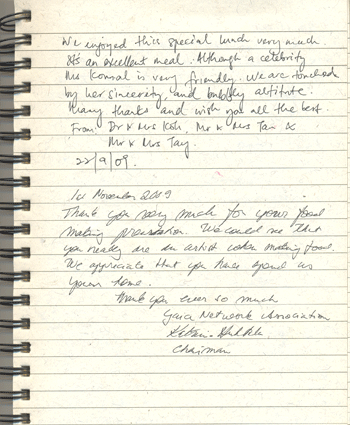 We enjoyed this special lunch very much.
It's an excellent meal. Although a celebrity
Ms Konsal is very friendly. We are touched
by her sincerity and bubbly altitute.
Many thanks and wish you all the best.
From Dr & Mrs Koh, Mr & Mrs Tan &
Mr & Mrs Tay.
22/9/09.
1st November 2009
Thank you very much for your food
making presentation. We could see that
you really are an artist when making food.
We appreciate that you have spend us
your time.
Thank you ever so much
Network Association
Chairman